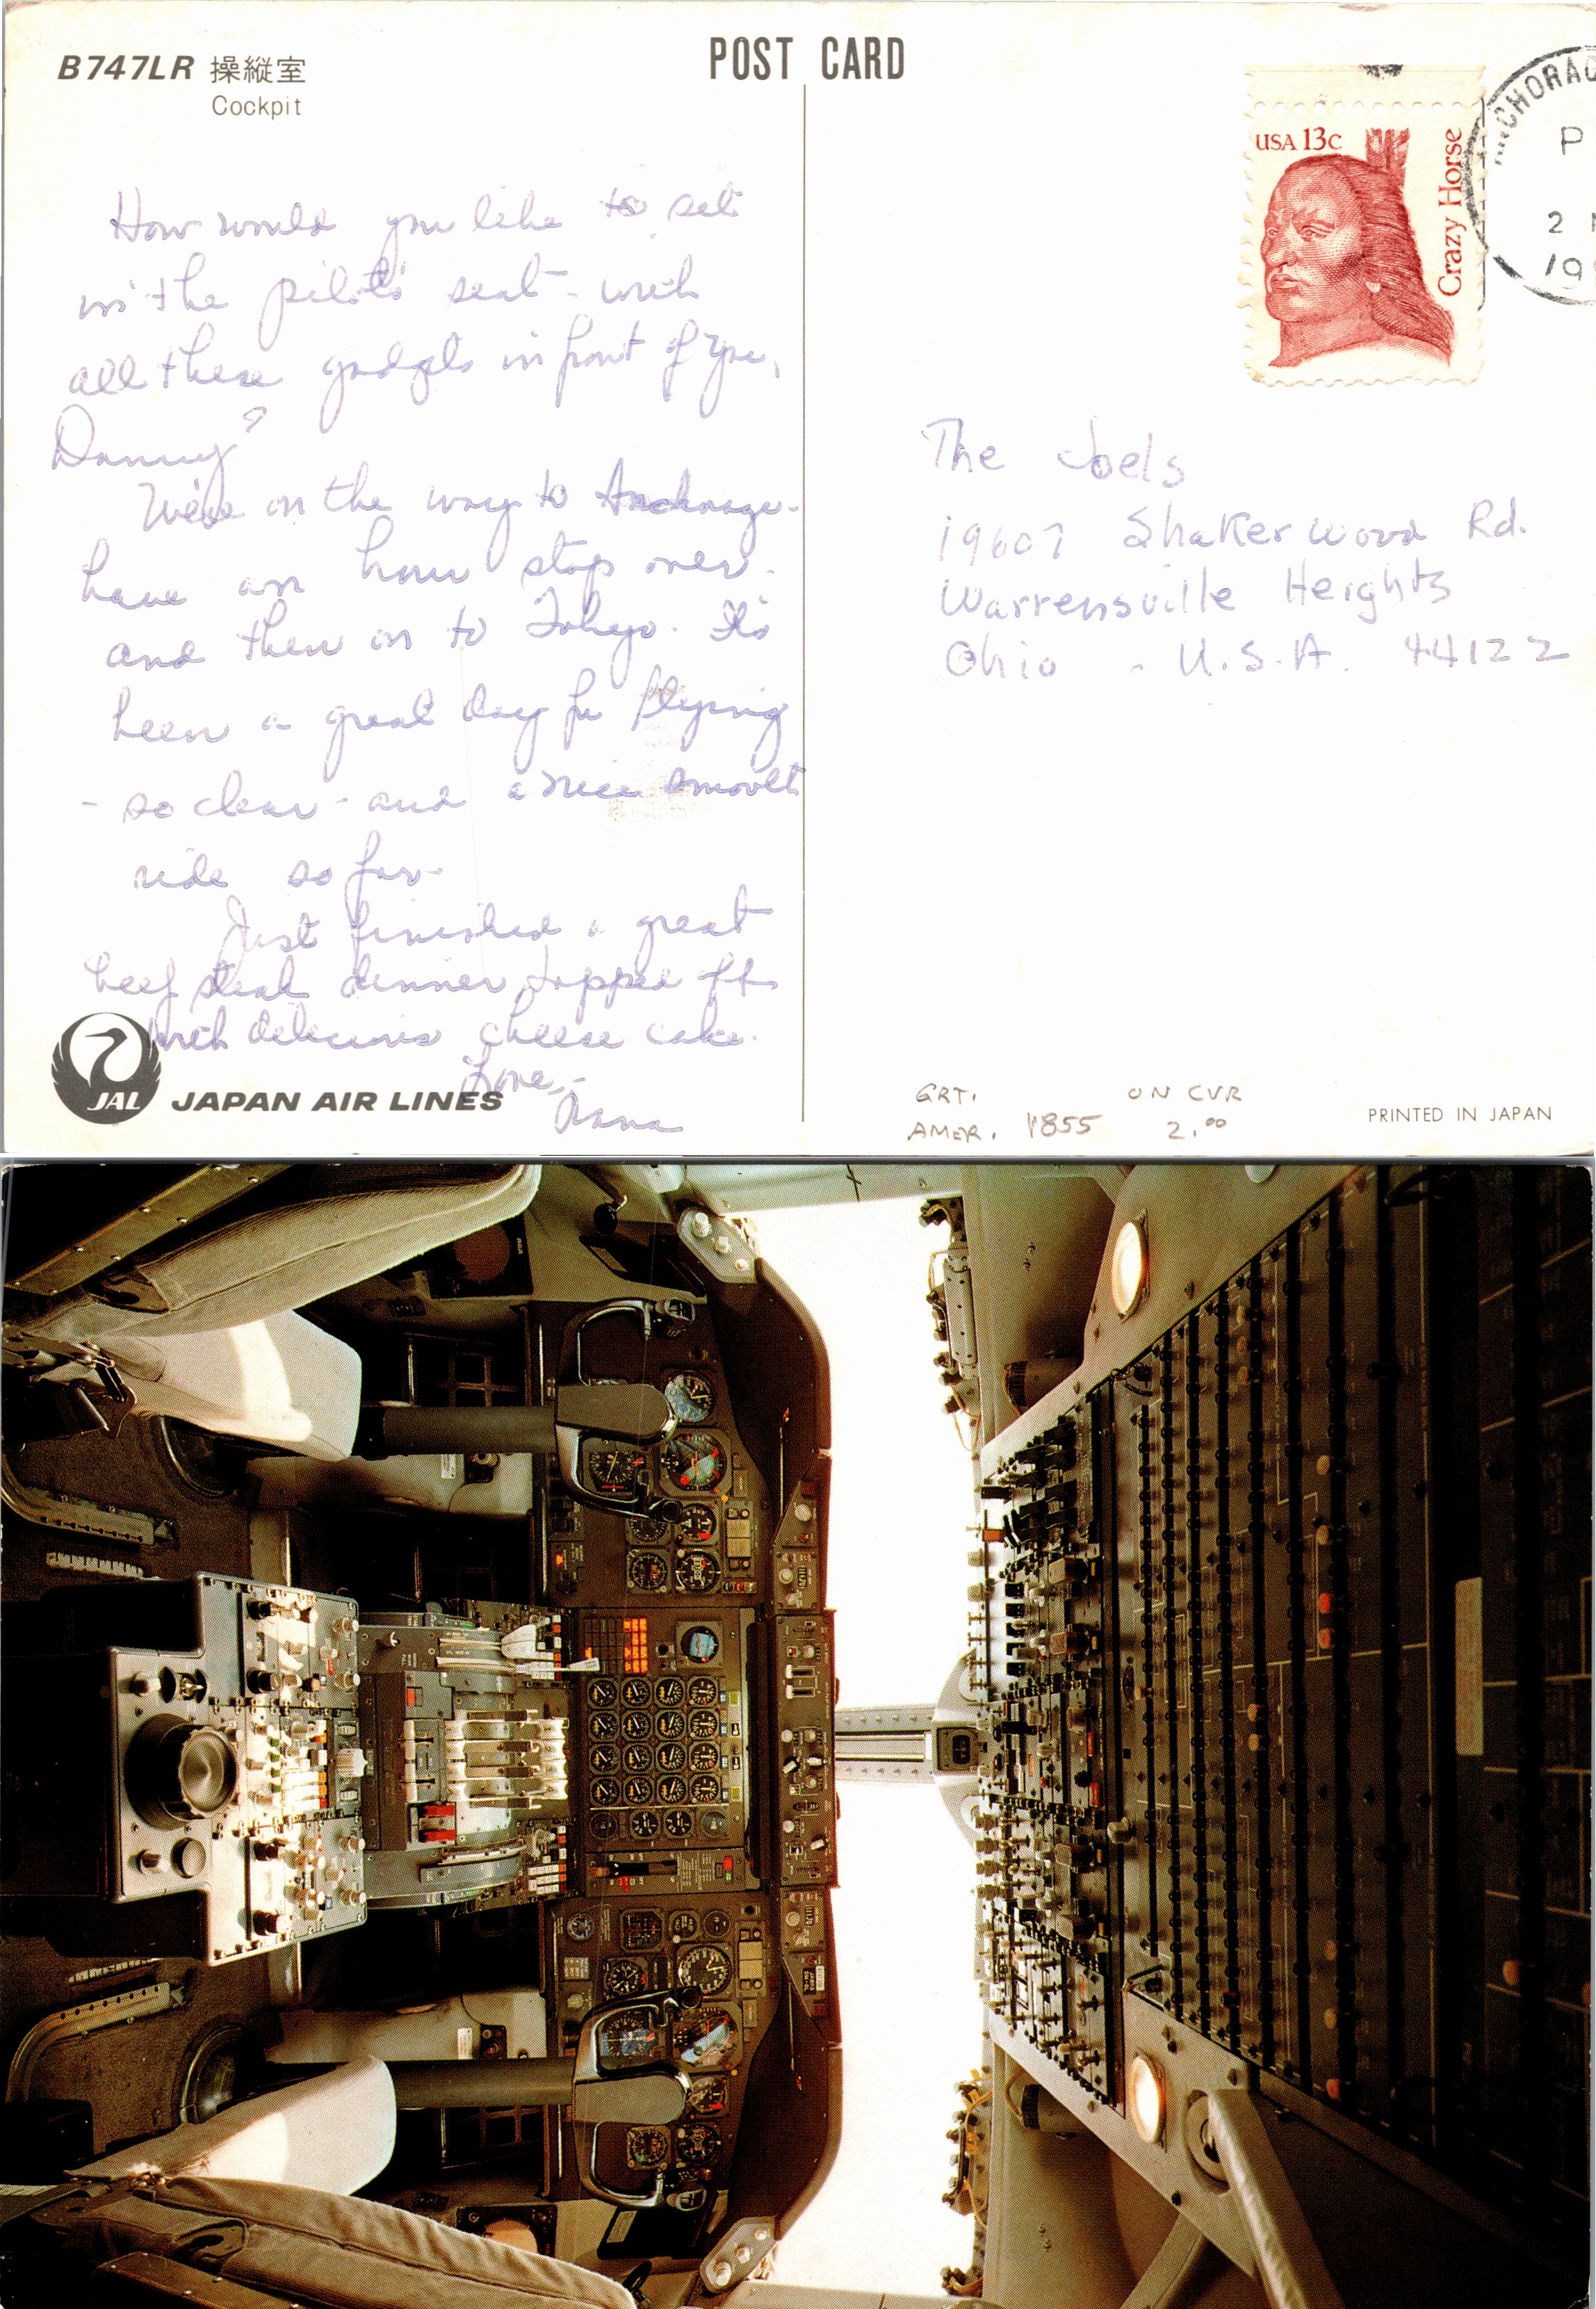 B747LR 操縦室
Cockpit
POST CARD
USA 13c
Crazy Horse
How would you like to sit
in the pilot's seat - with
all these gadgets in front of you,
Danny?
We're on the way to Anchorage -
have an hour stop over -
and then on to Tokyo. It's
been a great day for flying
- so clear - and a nice smooth
ride so far -
Just finished a great
beef steak dinner topped off
with delicious cheese cake.
Love, -
Nana
The Joels
19607 Shakerwood Rd.
Warrensville Heights
Ohio - U.S.A. 44122
JAL JAPAN AIR LINES
GRT. ON CVR
AMER. 1855 2.00
PRINTED IN JAPAN